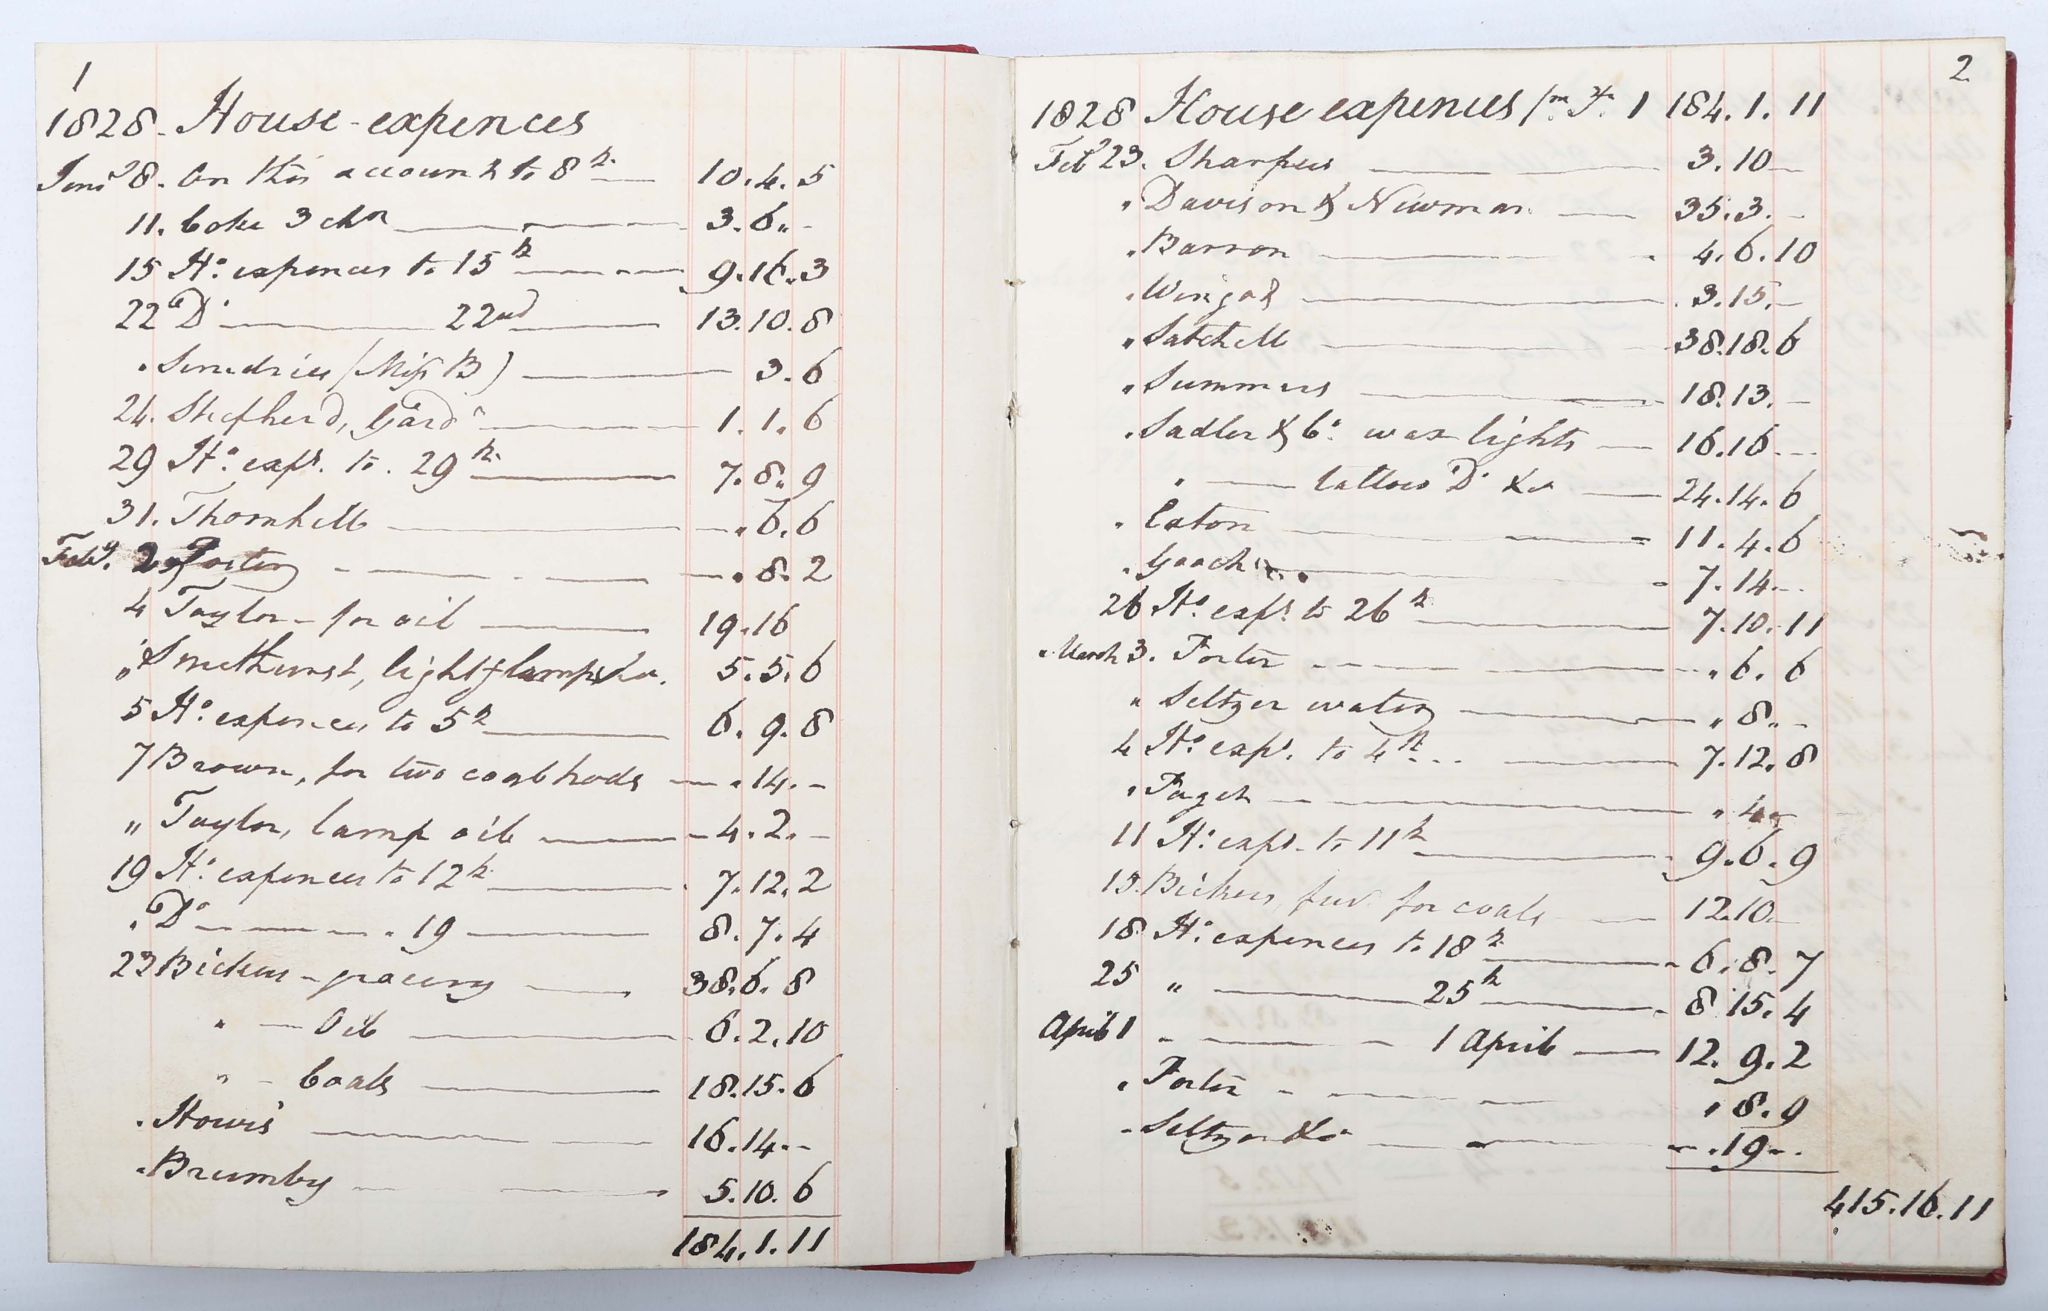 1
1828. House-expences
Jany 8. On this account to 8th 10.4.5
11. Coke 3 chn 3.6.-
15 Ho. expences to 15th 9.16.3
22 Do 22nd 13.10.8
" Sundries (Miss B) 3.6
24. Shepherd, Gardr 1.1.6
29 Ho. exps. to 29th 7.8.9
31. Thornhill .6.6
Feby. 2 Porter .8.2
4 Taylor - for oil 19.16
" Smethurst, light & lamps &c. 5.5.6
5 Ho. expences to 5th 6.9.8
7 Brown, for two coal hods .14.-
" Taylor, lamp oil 4.2.-
19 Ho. expences to 12th 7.12.2
" Do 19 8.7.4
23 Bickers - grocery 38.6.8
" - Oil 6.2.10
" - Coals 18.15.6
. Howis 16.14.-
. Brumby 5.10.6
184.1.11
2
1828 House expences fm. fo. 1 184.1.11
Feby 23. Sharpus 3.10-
" Davison & Newman 35.3.-
. Barron 4.6.10
. Wingod 3.15.-
" Satchell 38.18.6
" Summers 18.13.-
. Sadler & Co. wax lights 16.16.-
" tallow Do. &c 24.14.6
. Eaton 11.4.6
. Gooch 7.14.-
26 Ho. exps. to 26th 7.10.11
March 3. Porter .6.6
" Seltzer water .8.-
4 Ho. exps. to 4th 7.12.8
" Paget .4.-
11 Ho. exps. to 11th 9.6.9
15. Bickers for coals 12.10-
18 Ho. expences to 18th 6.8.7
25 " 25th 8.15.4
April 1 1 April 12.9.2
. Porter .8.9
. Seltzer &c .19.-
415.16.11